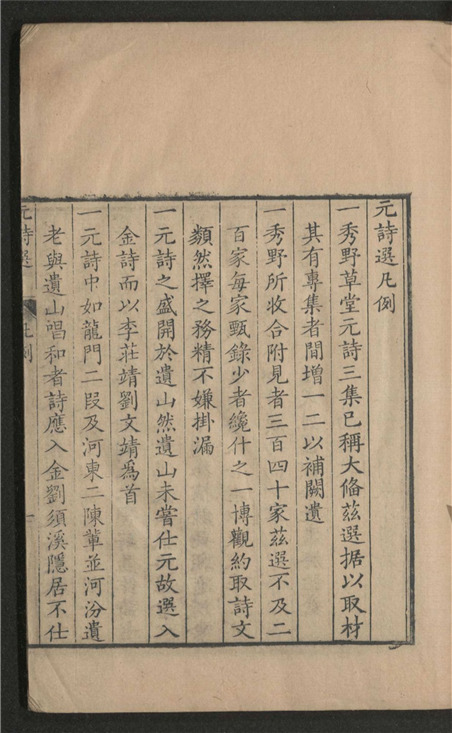 元詩選凡例
一秀野草堂元詩三集已稱大備茲選据以取材
其有專集者間增一二以補闕遺
一秀野所收合附見者三百四十家茲選不及二
百家每家甄錄少者纔什之一博觀約取詩文
類然擇之務精不嫌掛漏
一元詩之盛開於遺山然遺山未嘗仕元故選入
金詩而以李莊靖劉文靖為首
一元詩中如龍門二段及河東二陳輩並河汾遺
老與遺山唱和者詩應入金劉須溪隱居不仕
元詩選 凡例 一